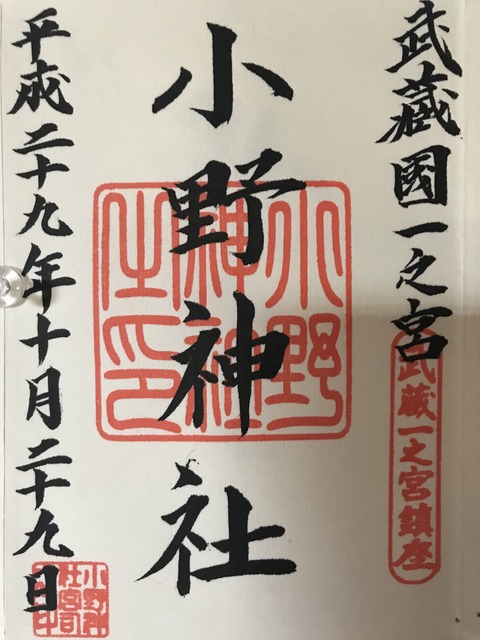 武蔵國一之宮
武蔵一之宮鎮座
小野神社
小野
神社
之印
平成二十九年十月二十九日
小野神
社宮司